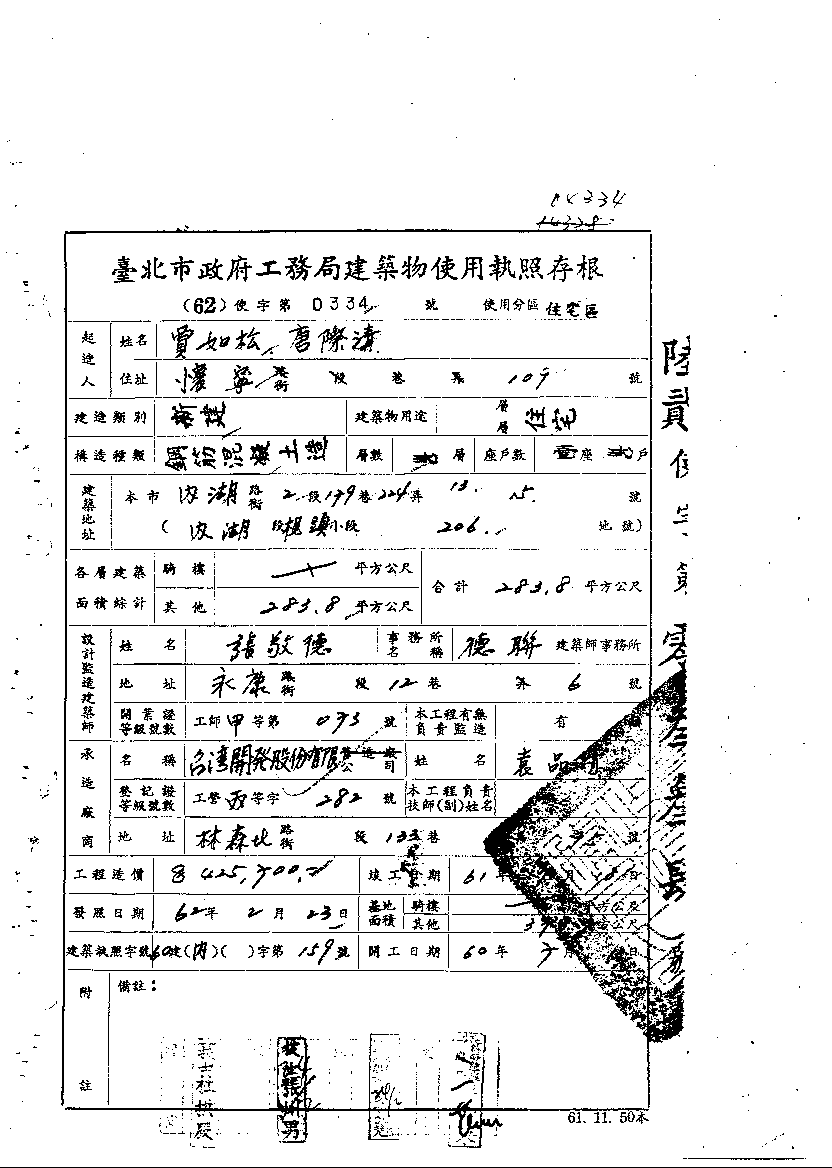 04334
臺北市政府工務局建築物使用執照存根
(62)使字第 0334 號 使用分區 住宅區
起造人 姓名 賈如松、唐際清
住址 懷寧 路街 段 巷 弄 109 號
建造類別 新建 建築物用途 層層 住宅
構造種類 鋼筋混凝土造 層數 層 座戶數 壹座 戶
建築地址 本市 內湖 路街 2段179巷224弄 13. 15. 號
(內湖 段 小段 206. 地號)
各層建築面積綜計 騎樓 平方公尺 合計 283.8 平方公尺
其他 283.8 平方公尺
設計監造建築師 姓名 張敬德 事務所名稱 德聯 建築師事務所
地址 永康 路街 段 12巷 弄 6 號
開業證等級號數 工師甲等第 073 號 本工程有無負責監造 有
承造廠商 名稱 台湾開発股份有限公司 姓名 袁品
登記證等級號數 工營丙等字 282 號 本工程負責技師(副)姓名
地址 林森北 路街 段 133巷
工程造價 竣工日期 61年 月 日
發照日期 62年 2月 23日 基地面積 騎樓 平方公尺
其他 平方公尺
建築執照字號 60建(內)( )字第 159 號 開工日期 60年 月 日
附註 備註：
61. 11. 50本
陸貳使字第零